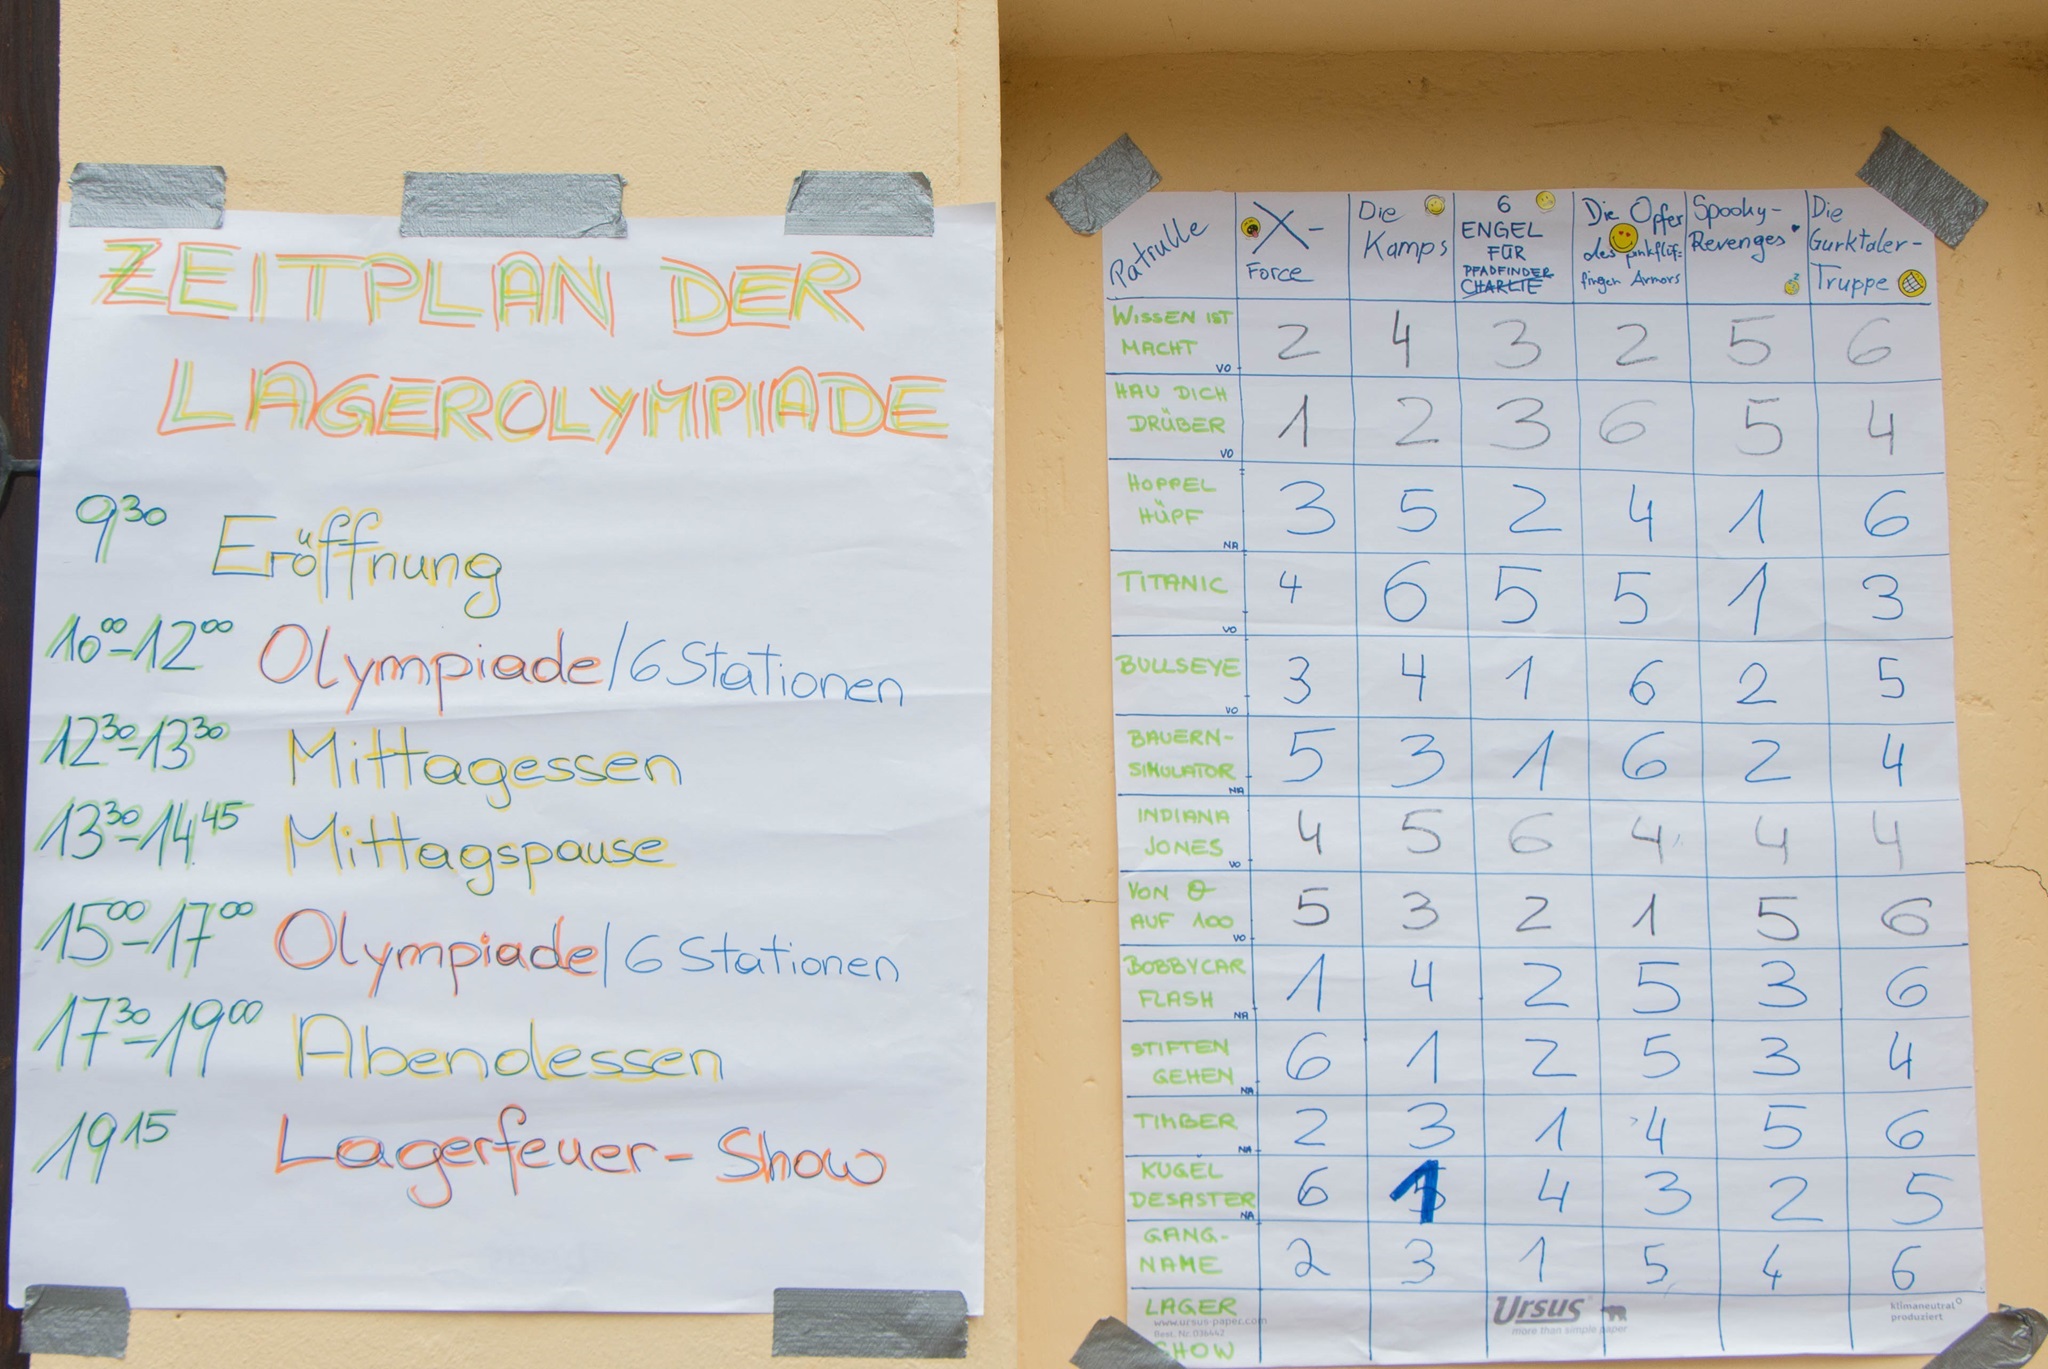 ZEITPLAN DER
LAGEROLYMPIADE
9³⁰ Eröffnung
10⁰⁰-12⁰⁰ Olympiade/6 Stationen
12³⁰-13³⁰ Mittagessen
13³⁰-14⁴⁵ Mittagspause
15⁰⁰-17⁰⁰ Olympiade/6 Stationen
17³⁰-19⁰⁰ Abendessen
19¹⁵ Lagerfeuer-Show
Patrulle
X-
Force
Die
Kamps
6
ENGEL
FÜR
PFADFINDER
CHARLIE
Die Opfer
des pinkflüf-
fingen Armors
Spooky-
Revenges
Die
Gurktaler-
Truppe
WISSEN IST
MACHT VO 2 4 3 2 5 6
HAU DICH
DRÜBER VO 1 2 3 6 5 4
HOPPEL
HÜPF NA 3 5 2 4 1 6
TITANIC VO 4 6 5 5 1 3
BULLSEYE VO 3 4 1 6 2 5
BAUERN-
SIMULATOR NA 5 3 1 6 2 4
INDIANA
JONES VO 4 5 6 4 4 4
VON 0
AUF 100 VO 5 3 2 1 5 6
BOBBYCAR
FLASH NA 1 4 2 5 3 6
STIFTEN
GEHEN NA 6 1 2 5 3 4
TIMBER NA 2 3 1 4 5 6
KUGEL
DESASTER NA 6 1 4 3 2 5
GANG-
NAME 2 3 1 5 4 6
LAGER
SHOW
www.ursus-paper.com
Best. Nr. 036442
Ursus®
more than simple paper
klimaneutral
produziert